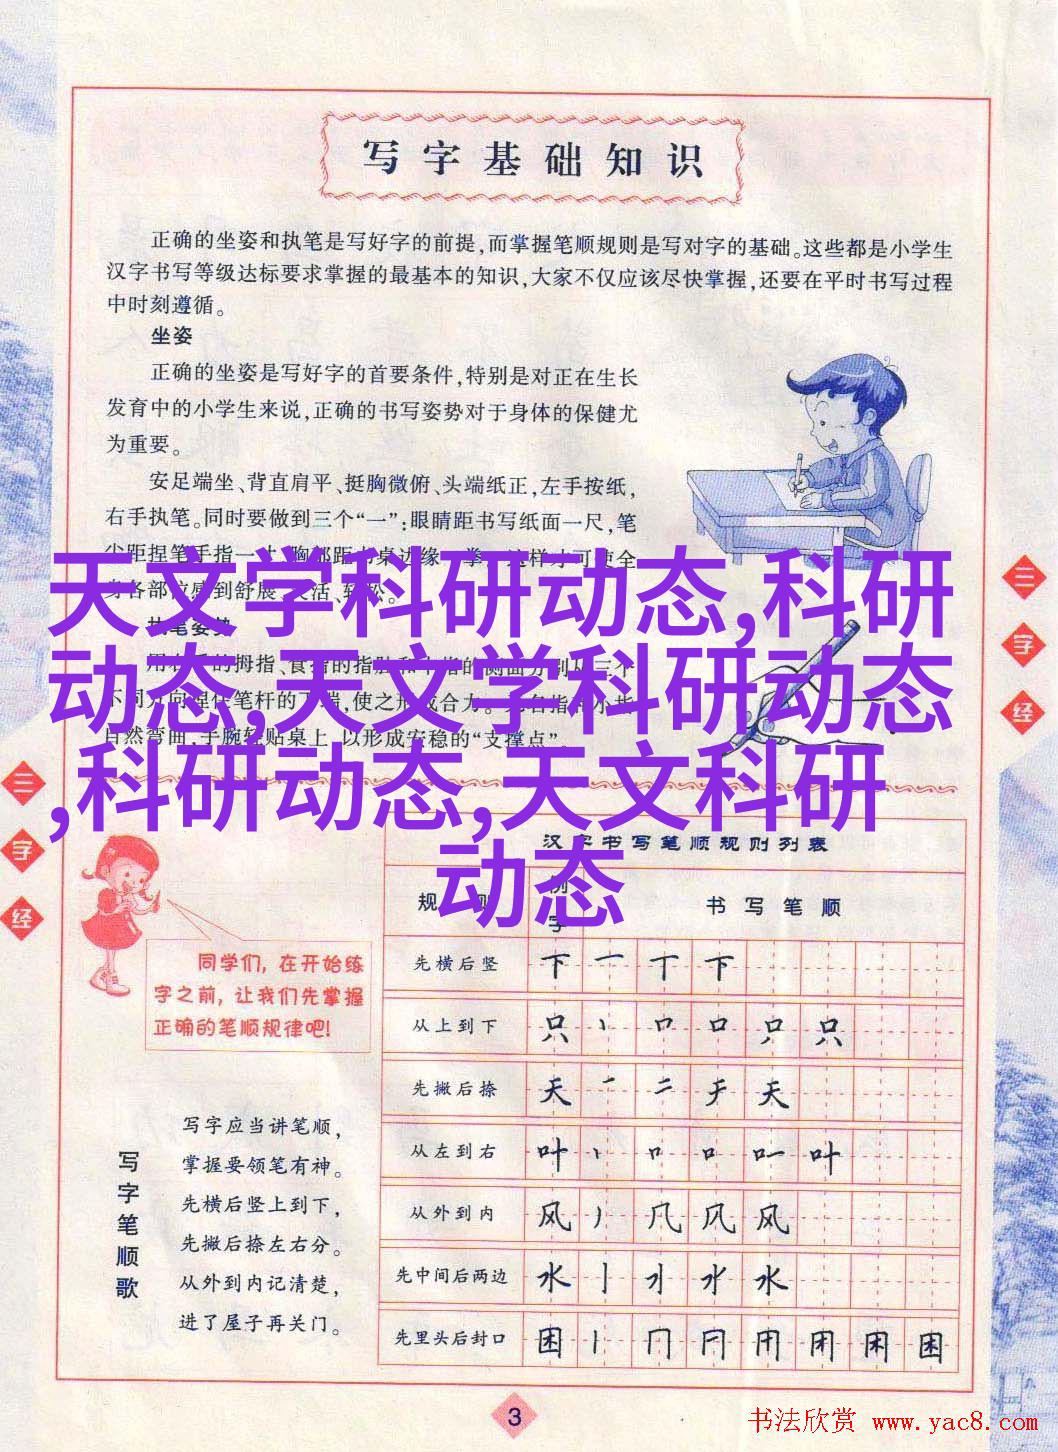 写字基础知识
正确的坐姿和执笔是写好字的前提,而掌握笔顺规则是写对字的基础。这些都是小学生
汉字书写等级达标要求掌握的最基本的知识,大家不仅应该尽快掌握,还要在平时书写过程
中时刻遵循。
坐姿
正确的坐姿是写好字的首要条件,特别是对正在生长
发育中的小学生来说,正确的书写姿势对于身体的保健尤
为重要。
安足端坐、背直肩平、挺胸微俯、头端纸正,左手按纸,
右手执笔。同时要做到三个“一”:眼睛距书写纸面一尺,笔
天文学科研动态,科研
动态,天文学科研动态
,科研动态,天文科研
动态
三字经
三字经
汉字书写笔顺规则列表
规则 例字 书写笔顺
先横后竖 下 一 丅 下
从上到下 只 丶 口 口 只
先撇后捺 天 一 二 チ 天
从左到右 叶 丶 口 口 叶
从外到内 风 丿 几 风 风
先中间后两边 水 亅 水
先里头后封口 困 丨 冂 困
同学们,在开始练
字之前,让我们先掌握
正确的笔顺规律吧!
写字笔顺歌
写字应当讲笔顺,
掌握要领笔有神。
先横后竖上到下,
先撇后捺左右分。
从外到内记清楚,
进了屋子再关门。
3
书法欣赏 www.yac8.com